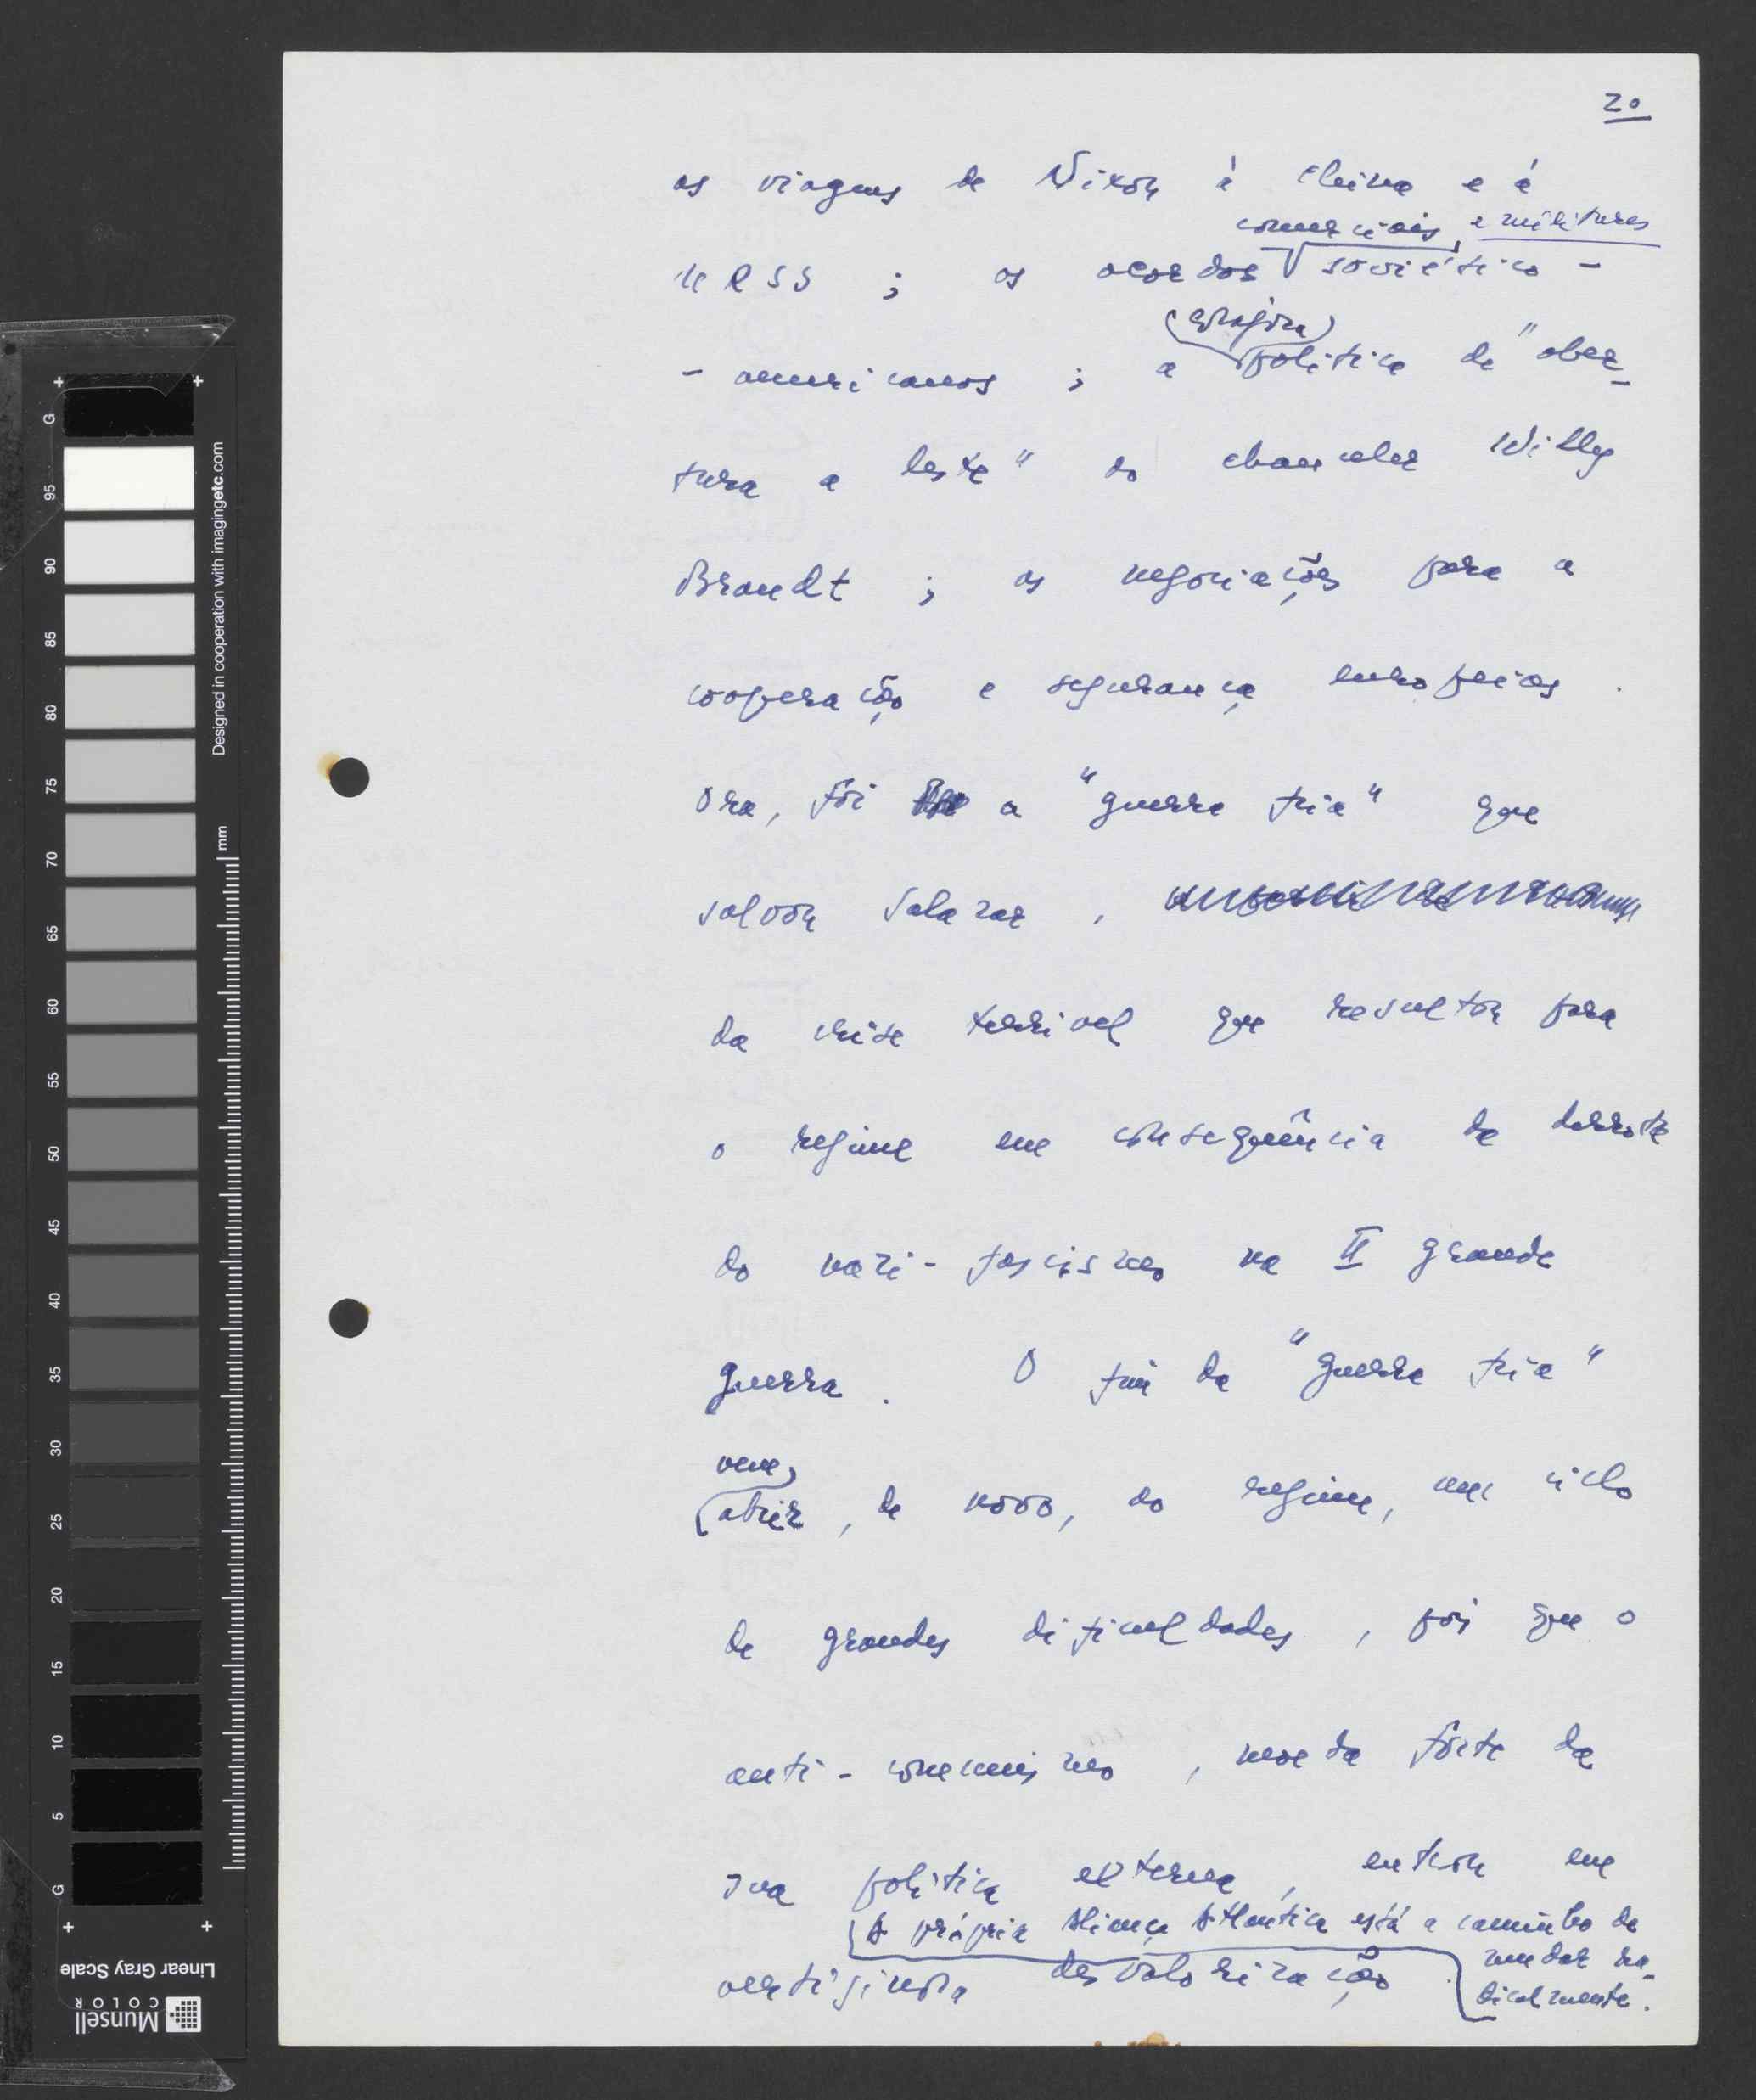 20
as viagens de Nixon à China e à
comerciais, e militares
URSS ; os acordos soviético -
(corajosa)
- americanos ; a política de "aber-
tura a leste" do chanceler Willy
Brandt ; as negociações para a
cooperação e segurança europeias .
Ora, foi a "guerra fria" que
salvou Salazar ,
da crise terrivel que resultou para
o regime em consequência da derrota
do nazi-fascismo na II grande
guerra . O fim da "guerra fria"
vem
abrir , de novo, ao regime, um ciclo
de grandes dificuldades , pois que o
anti-comunismo , moeda forte da
sua política externa , entrou em
A própria Aliança Atlântica está a caminho de
mudar ra-
dicalmente.
vertiginosa desvalorização .
Designed in cooperation with imagingetc.com
mm
G
95
90
85
80
75
70
65
60
55
50
45
40
35
30
25
20
15
10
5
G
Linear Gray Scale
Munsell
COLOR